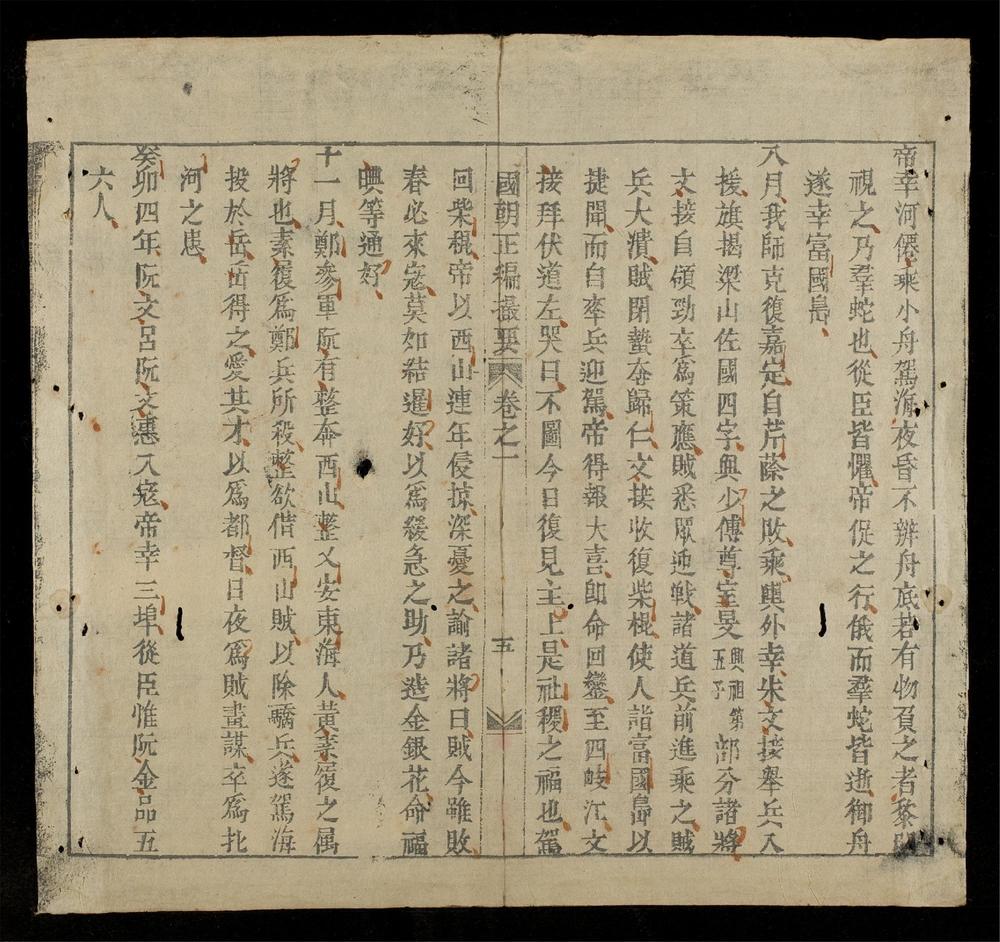 帝幸河僊乘小舟駕海夜昏不辨舟底若有物負之者黎明
視之乃羣蛇也從臣皆懼帝促之行俄而羣蛇皆逝御舟
遂幸富國島
八月我師克復嘉定自芹蒢之敗乘輿外幸朱文接舉兵入
援旗揭梁山佐國四字與少傅尊室旻興祖第五子部分諸將
文接自領勁卒爲策應賊悉眾迎戰諸道兵前進乘之賊
兵大潰賊閉蟄奔歸仁文接收復柴棍使人詣富國島以
捷聞而自率兵迎駕帝得報大喜卽命回鑾至四岐江文
接拜伏道左哭曰不圖今日復見主上是社稷之福也駕
國朝正編撮要 卷之一 五
回柴棍帝以西山連年侵掠深憂之諭諸將曰賊今雖敗
春必來寇莫如結暹好以爲緩急之助乃造金銀花命福
興等通好
十一月鄭參軍阮有整奔西山整乂安東海人黃素履之属
將也素履爲鄭兵所殺整欲借西山賊以除驕兵遂駕海
投於岳岳得之愛其才以爲都督日夜爲賊畫謀卒爲北
河之患
癸卯四年阮文呂阮文惠入寇帝幸三埠從臣惟阮金品五
六人